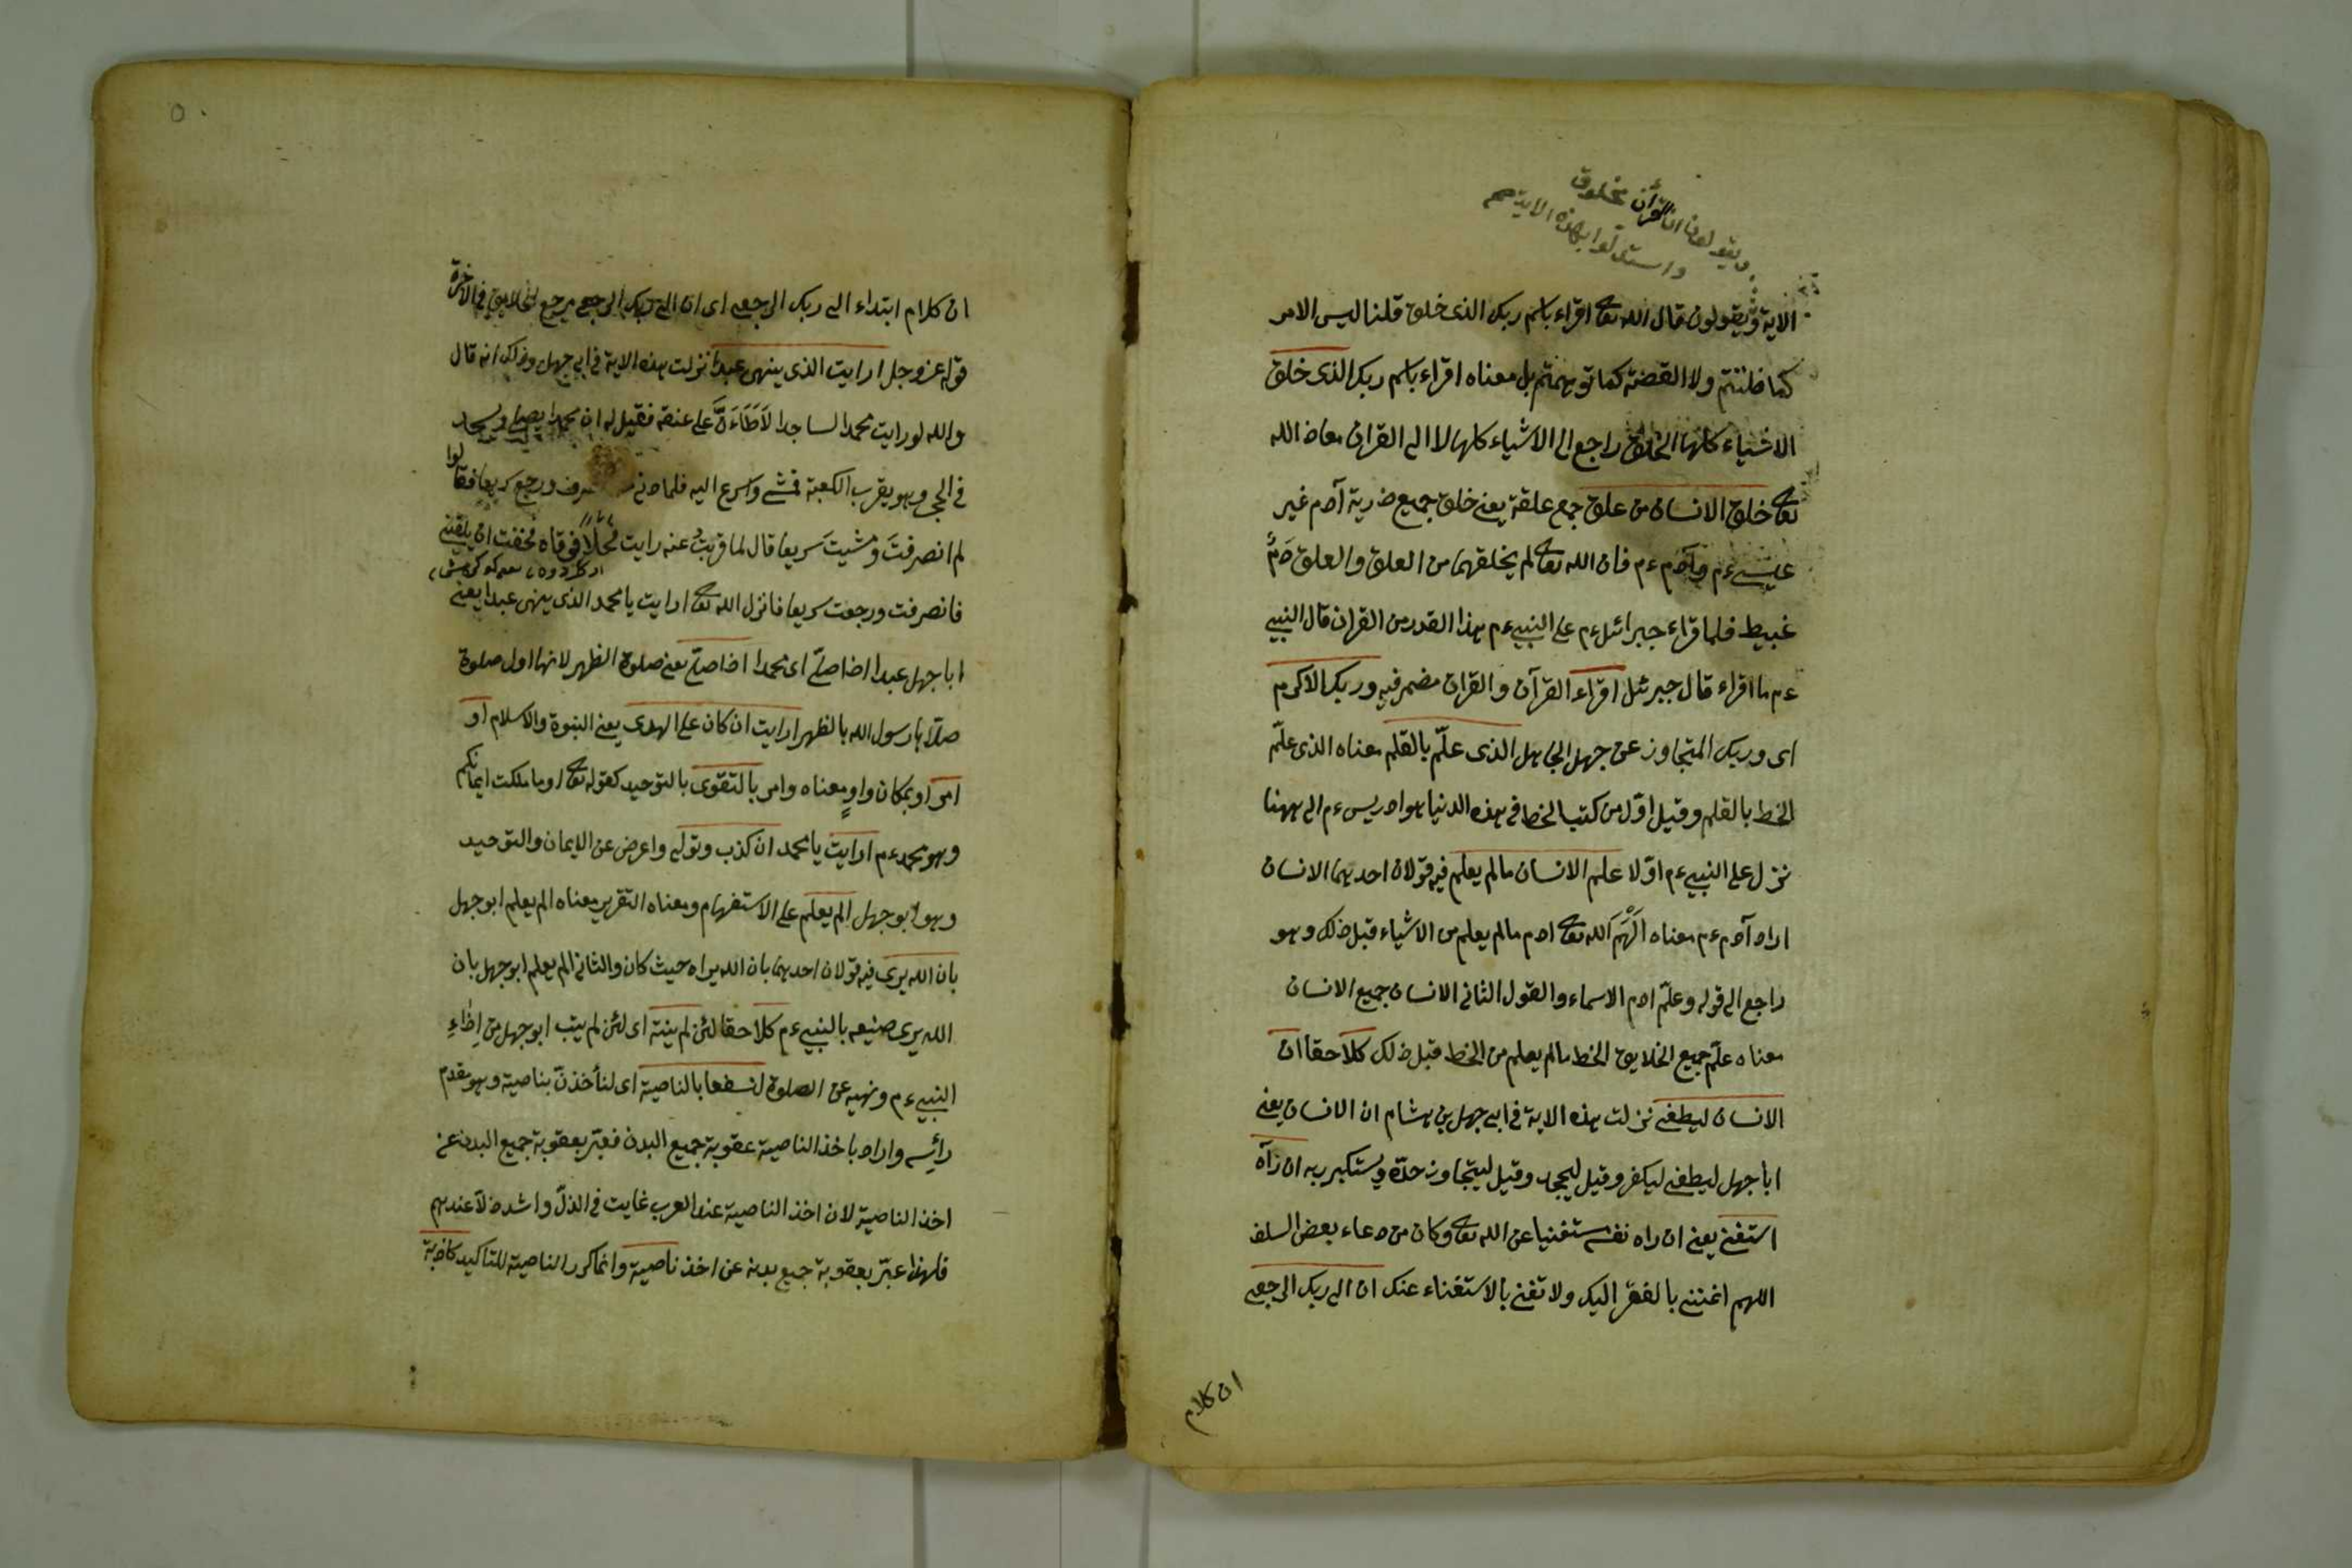 ويقولون ان القرآن مخلوق
واستدلوا بهذه الاية صح
الاية ويقولون قال الله تعا اقراء باسم ربك الذى خلق قلنا ليس الامر
كما ظننتم ولا القضية كما توهمتم بل معناه اقراء باسم ربك الذى خلق
الاشياء كلها الخلق راجع الى الاشياء كلها لا الى القران معاذ الله
تعا خلق الانسان من علق جمع علقة يعنى خلق جميع ذرية آدم غير
عيسى ءم وآدم ءم فان الله تعا لم يخلقهما من العلق والعلق دَمٌ
غبيط فلما قراء جبرائل ءم على النبى ءم هذا القدر من القران قال النبى
ءم ما اقراء قال جبرئل اقراء القرآن والقران مضمر فيه وربك الاكرم
اى وربك المتجاوز عن جهل الجاهل الذى علّم بالقلم معناه الذى علّم
الخط بالقلم وقيل اوّل من كتب الخط فى هذه الدنيا هو ادريس ءم الى ههنا
نزل على النبى ءم اوّلا علم الانسان مالم يعلم فيه قولان احديهما الانسان
اراد آدم ءم معناه اَلْهَمَ الله تعا ادم مالم يعلم من الاشياء قبل ذلك وهو
راجع الى قوله وعلّم ادم الاسماء والقول الثانى الانسان جميع الانسان
معناه علّم جميع الخلايق الخط مالم يعلم من الخط قبل ذلك كلا حقا ان
الانسان ليطغى نزلت هذه الاية فى ابى جهل بن هشام ان الانسان يعنى
ابا جهل ليطغى ليكفر وقيل ليجحد وقيل ليتجاوز حدّه ويستكبر ربه ان رآه
استغنى يعنى ان راه نفسه مستغنيا عن الله تعا وكان من دعاء بعض السلف
اللهم اغننى بالفقر اليك ولا تغنى بالاستغناء عنك ان الى ربك الرجعى
ان كلام
ان كلام ابتداء الى ربك الرجعى اى ان الى ربك الرجعى مرجع الخلايق فى الاخرة
قوله عز وجل ارايت الذى ينهى عبدا نزلت هذه الاية فى ابى جهل وذلك انه قال
والله لو رايت محمدا ساجدا لَاَطَاءَنَّ على عنقه فقيل له ان محمدا يصلى ويسجد
فى الحجر وهو يقرب الكعبة فمشى واسرع اليه فلما دنى ورجع سريعا فقالوا
لم انصرفتَ ومشيتَ سريعا قال لما قربتُ عنه رايت فحلا فخفت ان يلقنى
فانصرفت ورجعت سريعا فانزل الله تعا ارايت يا محمد الذى ينهى عبدا يعنى
ابا جهل عبدا اذا صلّى اى محمدا اذا صلّى يعنى صلوة الظهر لانها اول صلوة
صلّاها رسول الله بالظهر ارايت ان كان على الهدى يعنى النبوة والاسلام او
امر او بمكان واوٍ معناه وامر بالتقوى بالتوحيد كقوله تعا او ما ملكت ايمانكم
وهو محمد ءم ارايت يا محمد ان كذب وتولى واعرض عن الايمان والتوحيد
وهو ابو جهل الم يعلم على الاستفهام ومعناه التقرير معناه الم يعلم ابو جهل
بان الله يرى فيه قولان احديهما بان الله يراه حيث كان والثانى الم يعلم ابو جهل بان
الله يرى صنيعه بالنبى ءم كلا حقا لئن لم ينته اى لئن لم يتب ابو جهل من اِذاءِ
النبى ءم ونهيه عن الصلوة لنسفعا بالناصية اى لنأخذنّ بناصية وهو مقدم
رائسه واراد باخذ الناصية عقوبة جميع البدن فعبّر بعقوبة جميع البدن عن
اخذ الناصية لان اخذ الناصية عند العرب غايت فى الذلّ واشد ذلّا عندهم
فلهذا عبّر بعقوبة جميع بدنه عن اخذ ناصية وانما كرر الناصية للتاكيد كاذبة